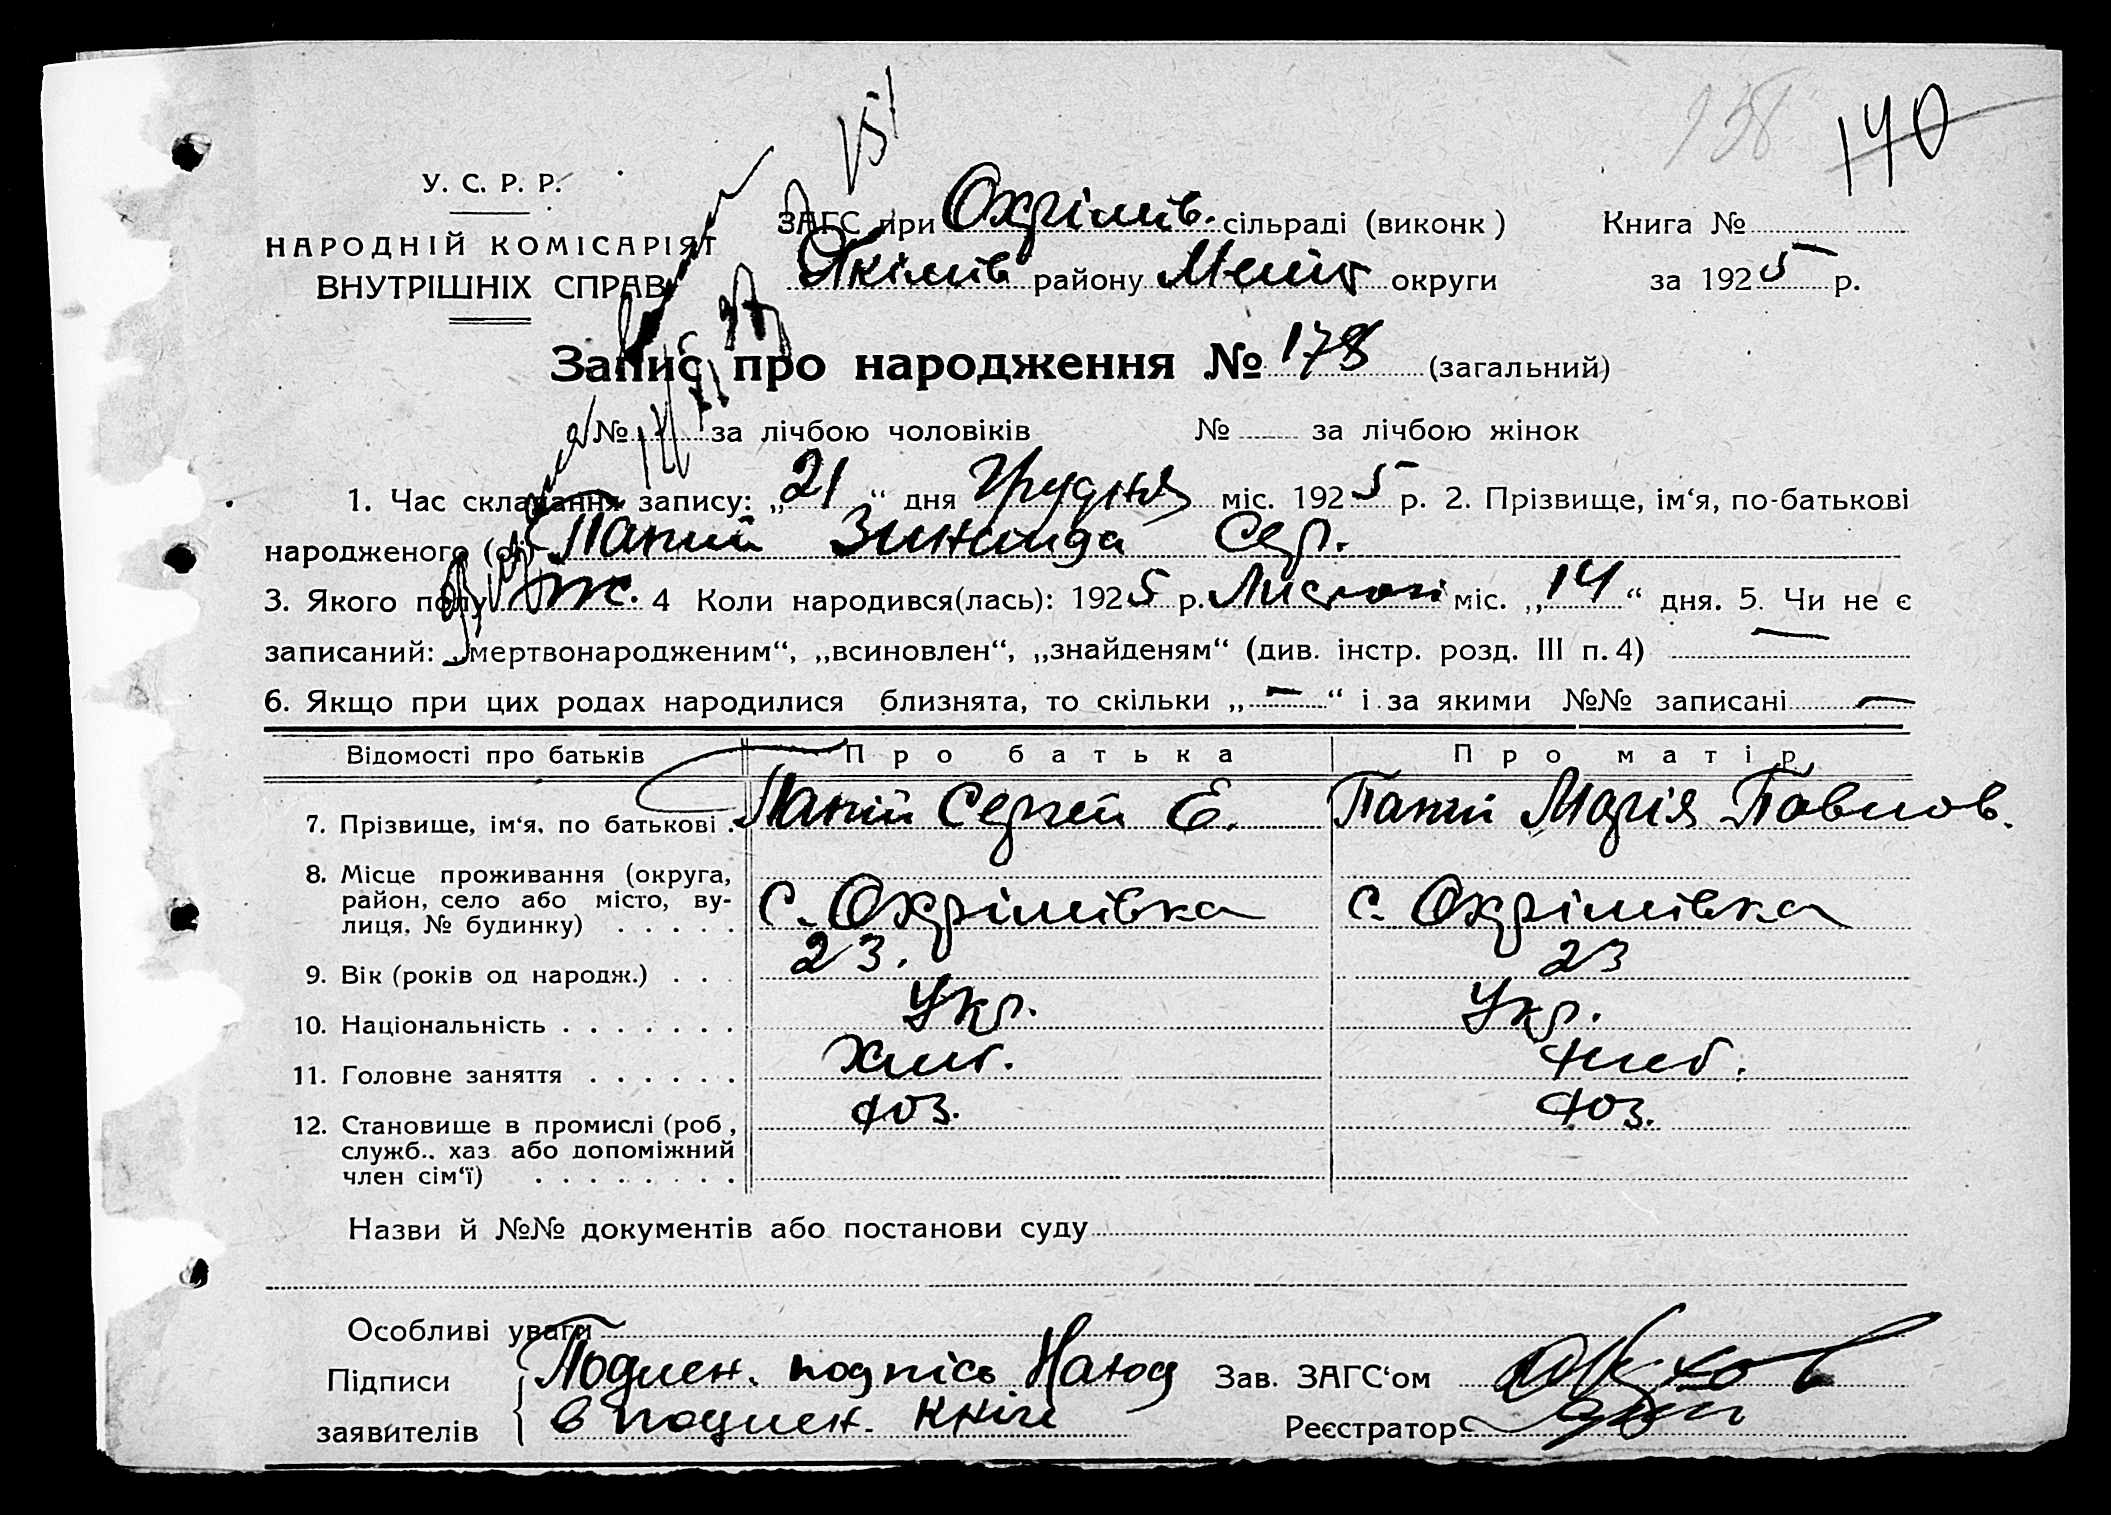 158
140
151
У. С. Р. Р.
НАРОДНІЙ КОМІСАРІЯТ
ВНУТРІШНІХ СПРАВ
ЗАГС при Охрімів. сільраді (виконк)
Якімів району Меліт округи
Книга №
за 1925 р.
Запис про народження № 178 (загальний)
№ за лічбою чоловіків № за лічбою жінок
1. Час складання запису: „21“ дня Грудня міс. 1925 р. 2. Прізвище, ім‘я, по-батькові
народженого (ої) Папій Зинаида Сер.
3. Якого полу ж. 4 Коли народився(лась): 1925 р. міс. „14“ дня. 5. Чи не є
записаний: „мертвонародженим“, „всиновлен“, „знайденям“ (див. інстр. розд. III п. 4) —
6. Якщо при цих родах народилися близнята, то скільки „—“ і за якими №№ записані —
Відомості про батьків Про батька Про матір
7. Прізвище, ім‘я, по батькові . Папій Сергей Е. Папій Марія Павлов.
8. Місце проживання (округа,
район, село або місто, ву-
лиця, № будинку) . . . . . с. Охрімівка с. Охрімівка
9. Вік (років од народж.) . . . 23. 23
10. Національність . . . . . . . Укр. Укр.
11. Головне заняття . . . . . . Хліб.
12. Становище в промислі (роб,
служб., хаз або допоміжний
член сім‘ї) . . . . . . . .
Назви й №№ документів або постанови суду
Особливі уваги
Підписи
заявителів
Подлен. подпісь
в подлен. кнігі
Зав. ЗАГС‘ом
Реєстратор